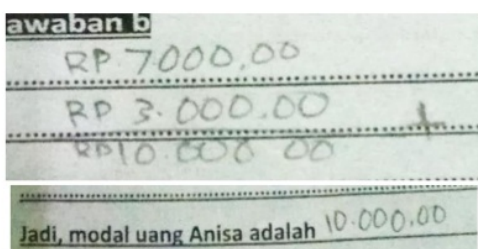 awaban b
RP 7000.00
RP 3.000.00 +
RP10.000 00
Jadi, modal uang Anisa adalah 10.000,00